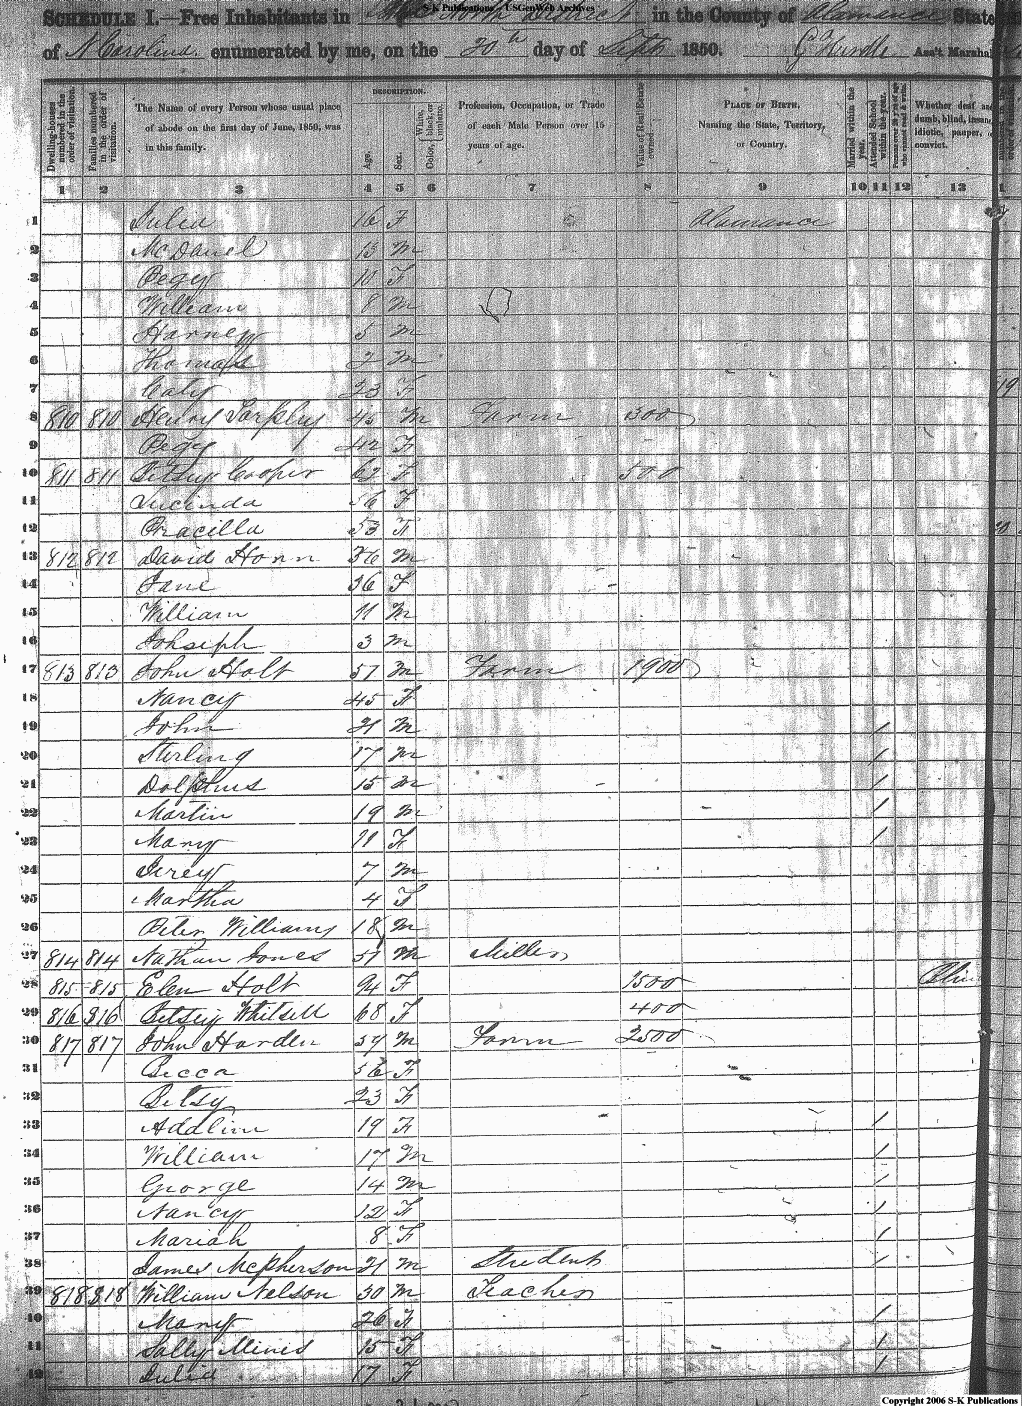 S-K Publications - USGenWeb Archives
SCHEDULE I.—Free Inhabitants in North District in the County of Alamance State
of N Carolina enumerated by me, on the 20th day of Sept 1850. G Hurdle Ass't Marshal
Dwelling-houses numbered in the order of visitation.
Families numbered in the order of visitation.
The Name of every Person whose usual place of abode on the first day of June, 1850, was in this family.
DESCRIPTION.
Age.
Sex.
Color, White, black, or mulatto.
Profession, Occupation, or Trade of each Male Person over 15 years of age.
Value of Real Estate owned.
PLACE OF BIRTH, Naming the State, Territory, or Country.
Married within the year.
Attended School within the year.
Persons over 20 y'rs of age who cannot read & write.
Whether deaf and dumb, blind, insane, idiotic, pauper, or convict.
1 2 3 4 5 6 7 8 9 10 11 12 13 1
1 Julia 16 F Alamance
2 McDaniel 13 M
3 Pegy 10 F
4 William 8 M
5 Harney 5 M
6 Thomas 2 M
7 Caty 23 F 19
8 810 810 Henry Tarpley 45 M Farm 300
9 Pegy 42 F
10 811 811 Betsey Cooper 62 F 500
11 Lucinda 56 F
12 Pracilla 53 F
13 812 812 David Horn 36 M
14 Jane 36 F
15 William 11 M
16 Johseph 3 M
17 813 813 John Holt 57 M Farm 1900
18 Nancy 45 F
19 John 21 M /
20 Sterling 17 M /
21 Dolphus 15 M /
22 Martin 19 M /
23 Mary 11 F /
24 7 M
25 Martha 4 F
26 Peter Williams 18 M
27 814 814 Nathan Jones 51 M Miller
28 815 815 Elen Holt 94 F 1500
29 816 816 Betsey Whitsell 68 F 400
30 817 817 John Harden 59 M Farm 2500
31 Becca 56 F
32 Betsy 23 F
33 Addline 19 F /
34 William 17 M /
35 George 14 M /
36 Nancy 12 F /
37 Mariah 8 F /
38 James McPherson 21 M Student /
39 818 818 William Nelson 30 M Teacher
40 Mary 26 F /
41 Sally Mines 15 F /
42 Julia 17 F /
Copyright 2006 S-K Publications